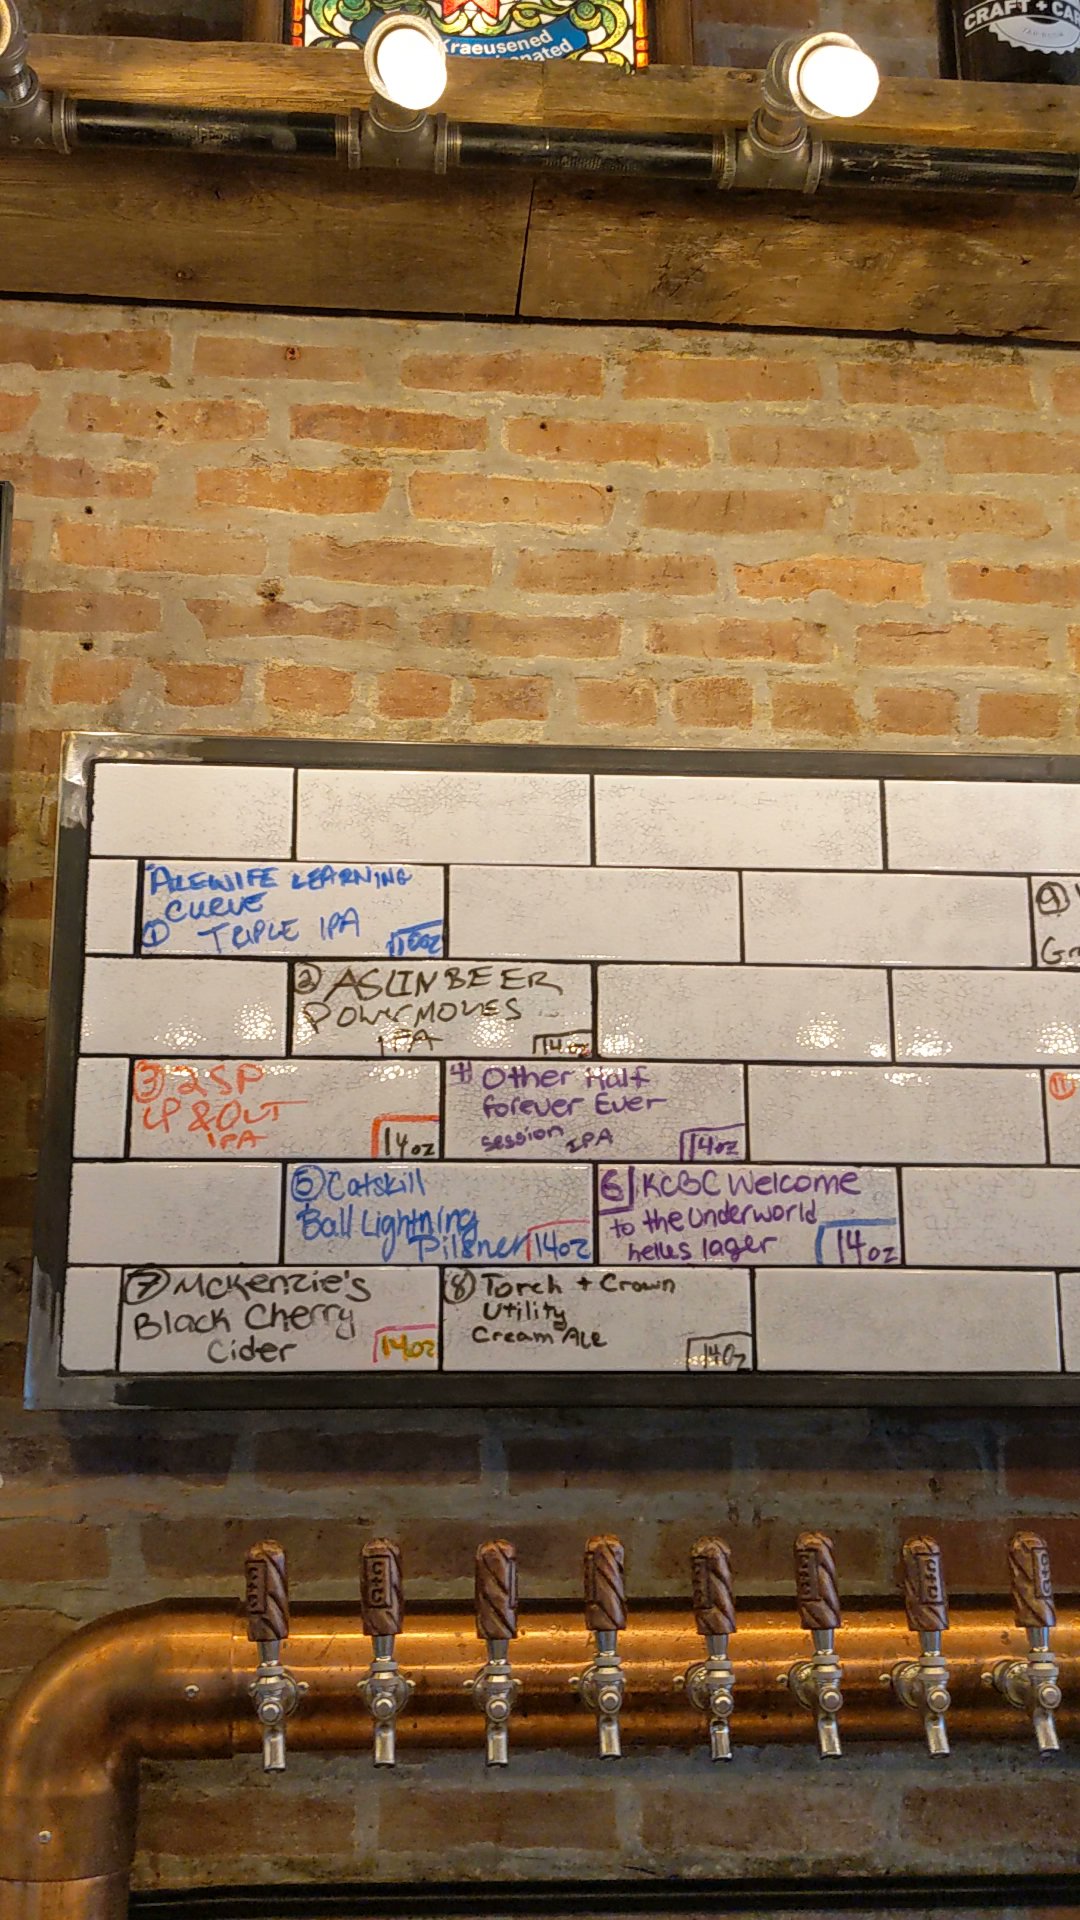 Kraeusened
CRAFT + CA
ALEWIFE LEARNING
CURVE
① TRIPLE IPA
② ASLIN BEER
POWER MOVES
IPA 14oz
③ 2SP
UP & OUT
IPA 14oz
4 Other Half
Forever Ever
session IPA 14oz
⑤ Catskill
Ball Lightning
Pilsner 14oz
6 KCBC Welcome
to the Underworld
helles lager 14oz
⑦ McKenzie's
Black Cherry
Cider 14oz
⑧ Torch + Crown
Utility
Cream Ale
14oz
⑨
⑪